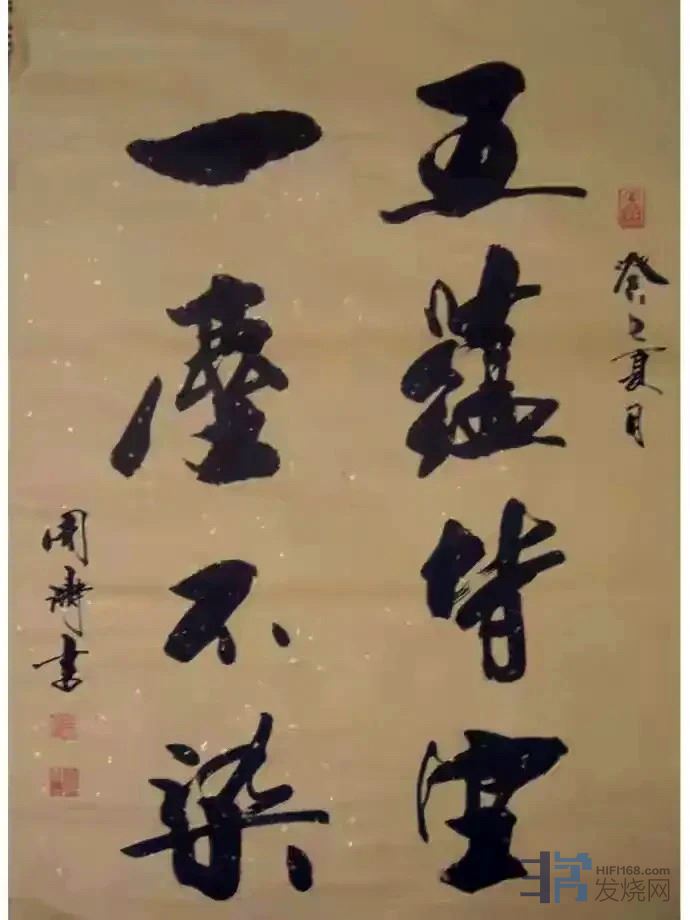 癸巳夏月
五蘊皆空
一塵不染
周濤書
HIFI168.com
发烧网